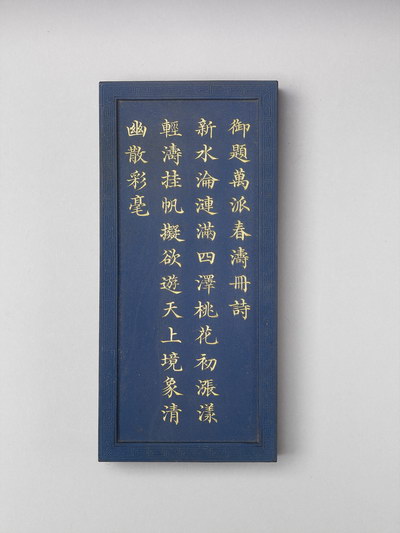 御題萬派春濤冊詩
新水淪漣滿四澤桃花初漲漾
輕濤挂帆擬欲遊天上境象清
幽散彩毫